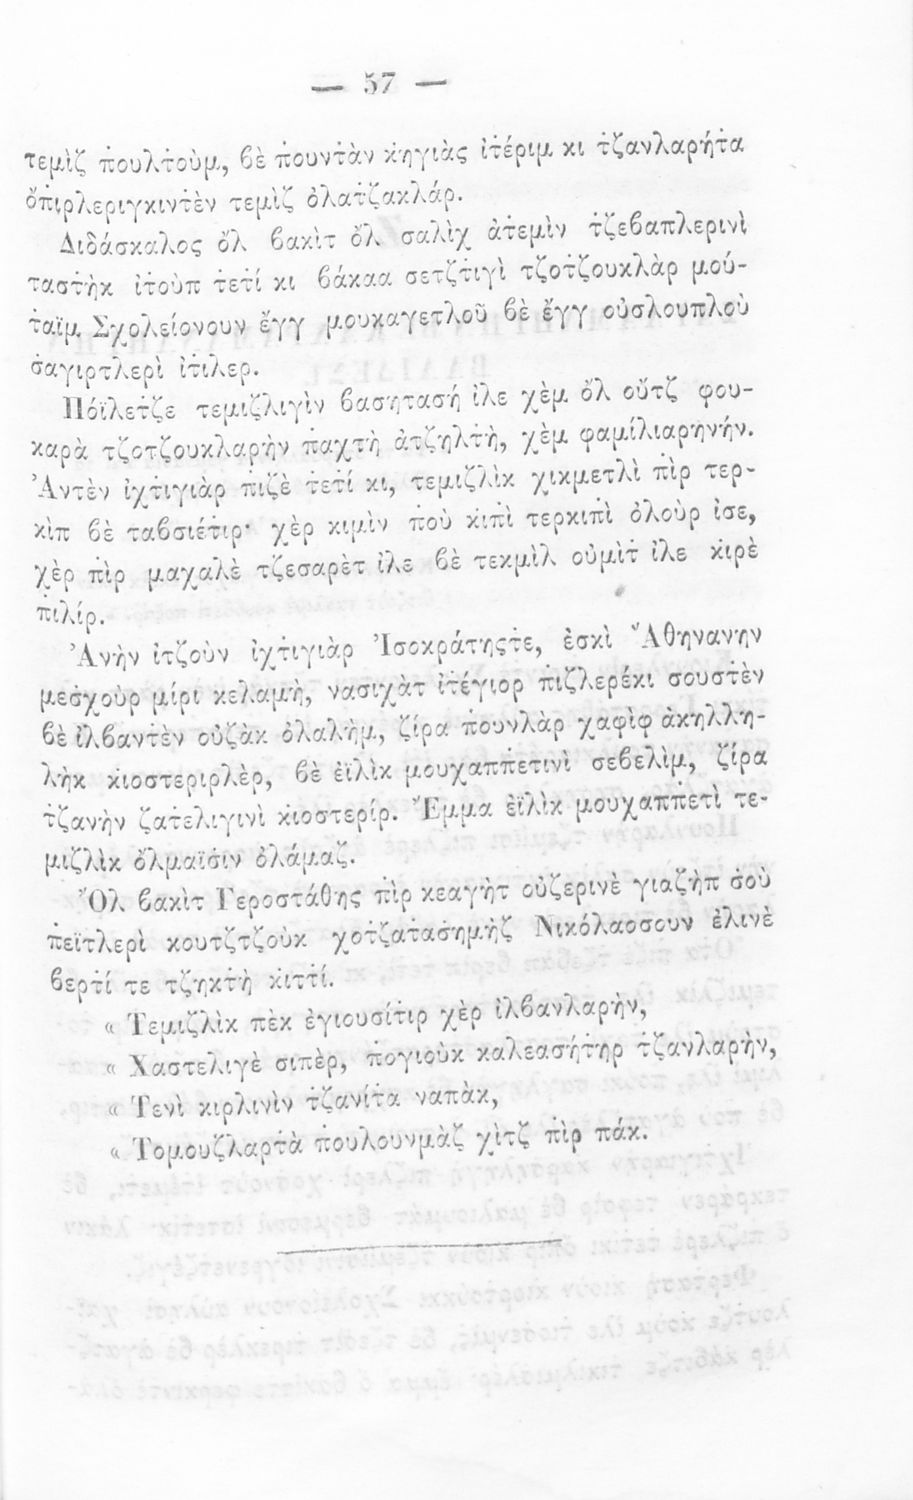 — 57 —
τεμὶζ π̇ουλτ̇ούμ, βὲ π̇ουντὰν κ̇ηγιὰς ἰτ̇έριμ κι τ̇ζανλαρήτ̇α
ὄπ̇ιρλεριγκιντὲν τεμὶζ ὀλατ̇ζακλάρ.
Διδάσκαλος ὄλ βακὶτ ὄλ σαλὶχ ἀτ̇εμὶν τ̇ζεβαπλερινὶ
ταστ̇ὴκ ἰτ̇οὺπ τ̇ετ̇ί κι βάκαα σετζτ̇ιγὶ τζοτ̇ζουκλὰρ μού-
τ̇αϊμ Σχολείονουν ἔγγ μουκαγετλοῦ βὲ ἔγγ οὐσλουπλοὺ
σ̇αγιρτλερὶ ἰτ̇ιλερ.
Πόϊλετ̇ζε τεμιζλιγὶν βασητασή ἰλε χὲμ ὄλ οὔτζ φου-
καρὰ τζοτζουκλαρὴν π̇αχτὴ ἀτζηλτ̇ὴ, χὲμ φαμίλιαρηνήν.
Ἀντὲν ἰχτιγιὰρ π̇ιζὲ τ̇ετ̇ί κι, τεμιζλὶκ χικμετλὶ π̇ὶρ τερ-
κὶπ βὲ ταβσιέτ̇ιρ· χὲρ κιμὶν π̇οὺ κ̇ιπ̇ὶ τερκιπ̇ὶ ὀλοὺρ ἰσε,
χὲρ π̇ὶρ μαχαλὲ τζεσαρὲτ ἰλε βὲ τεκμὶλ οὐμὶτ̇ ἰλε κ̇ιρὲ
π̇ιλίρ.
Ἀνὴν ἰτζοὺν ἰχτιγιὰρ Ἰσοκράτηςτ̇ε, ἐσκὶ Ἀθηνανην
μεσ̇χοὺρ μίρι κελαμὴ, νασιχὰτ ἰτ̇έγιορ π̇ιζλερέκι σουστὲν
βὲ ἰλβαντὲν οὐζὰκ ὀλαλὴμ, ζίρα π̇ουνλὰρ χαφὶφ ἀκηλλη-
λὴκ κ̇ιοστεριρλὲρ, βὲ ἐϊλὶκ μουχαπ̇π̇ετινὶ σεβελὶμ, ζίρα
τ̇ζανὴν ζατελιγινὶ κ̇ιοστερίρ. Ἔμμα ἐϊλὶκ μουχαπ̇π̇ετὶ τε-
μιζλὶκ ὀλμαϊσ̇ιν ὀλάμαζ.
Ὀλ βακὶτ Γεροστάθης π̇ὶρ κεαγὴτ̇ οὐζερινὲ γιαζὴπ σ̇οὺ
π̇εϊτλερὶ κουτζτζοὺκ χοτζατ̇ασημὴζ Νικόλαοσουν ἐλινὲ
βερτ̇ί τε τζηκτὴ κ̇ιττί.
« Τεμιζλὶκ πὲκ ἐγιουσίτ̇ιρ χὲρ ἰλβανλαρὴν,
« Χαστελιγὲ σιπὲρ, π̇ογιοὺκ καλεασήτ̇ηρ τ̇ζανλαρὴν,
« Τενὶ κιρλινὶν τ̇ζανίτ̇α ναπὰκ,
« Τομουζλαρτ̇ὰ π̇ουλουνμὰζ χὶτζ π̇ὶρ πάκ.